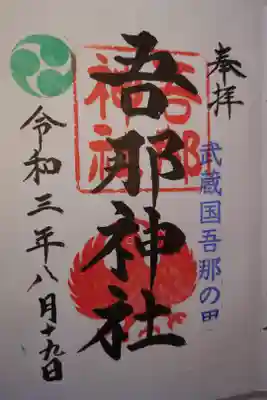 奉拝
武蔵国吾那の里
吾那神社
吾那神社
令和三年八月十九日